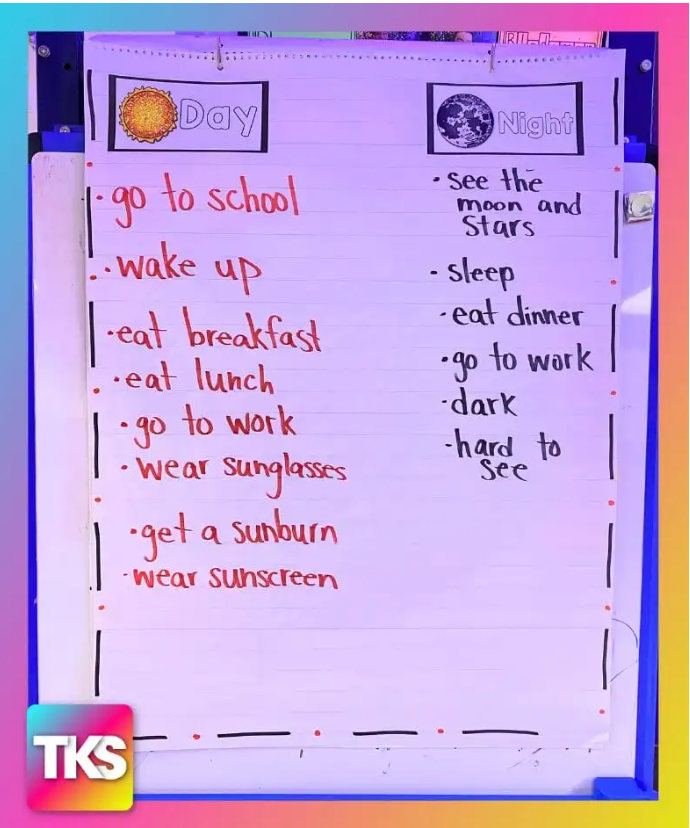 Day
· go to school
· wake up
· eat breakfast
· eat lunch
· go to work
· wear sunglasses
· get a sunburn
· wear sunscreen
Night
· see the
moon and
stars
· sleep
· eat dinner
· go to work
· dark
· hard to
see
TKS